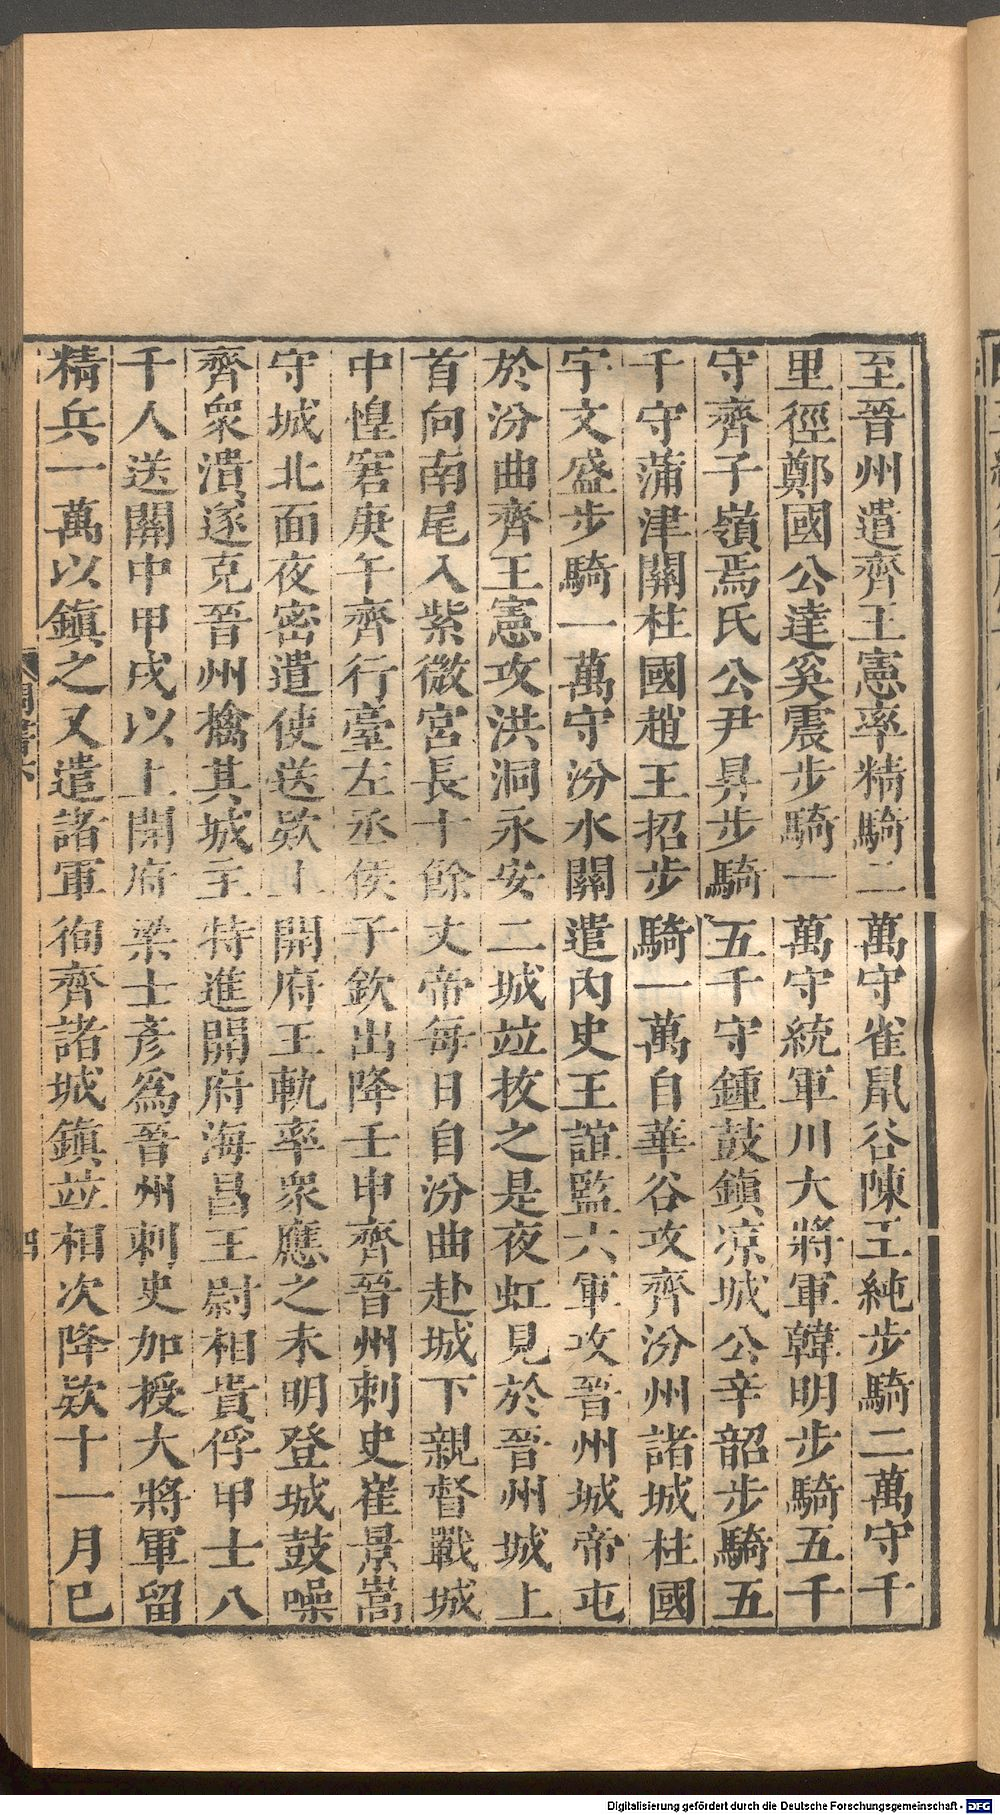 至晉州遣齊王憲率精騎二萬守雀鼠谷陳王純步騎二萬守千
里徑鄭國公達奚震步騎一萬守統軍川大將軍韓明步騎五千
守齊子嶺焉氏公尹昇步騎五千守鍾鼓鎭凉城公辛韶步騎五
千守蒲津關柱國趙王招步騎一萬自華谷攻齊汾州諸城柱國
宇文盛步騎一萬守汾水關遣內史王誼監六軍攻晉州城帝屯
於汾曲齊王憲攻洪洞永安二城竝抜之是夜虹見於晉州城上
首向南尾入紫微宮長十餘丈帝每日自汾曲赴城下親督戰城
中惶窘庚午齊行臺左丞侯子欽出降壬申齊晉州刺史崔景嵩
守城北面夜密遣使送欵上開府王軌率衆應之未明登城鼓噪
齊衆潰遂克晉州擒其城主特進開府海昌王尉相貴俘甲士八
千人送關中甲戌以上開府梁士彥爲晉州刺史加授大將軍留
精兵一萬以鎭之又遣諸軍徇齊諸城鎭竝相次降欵十一月巳
四
Digitalisierung gefördert durch die Deutsche Forschungsgemeinschaft - DFG